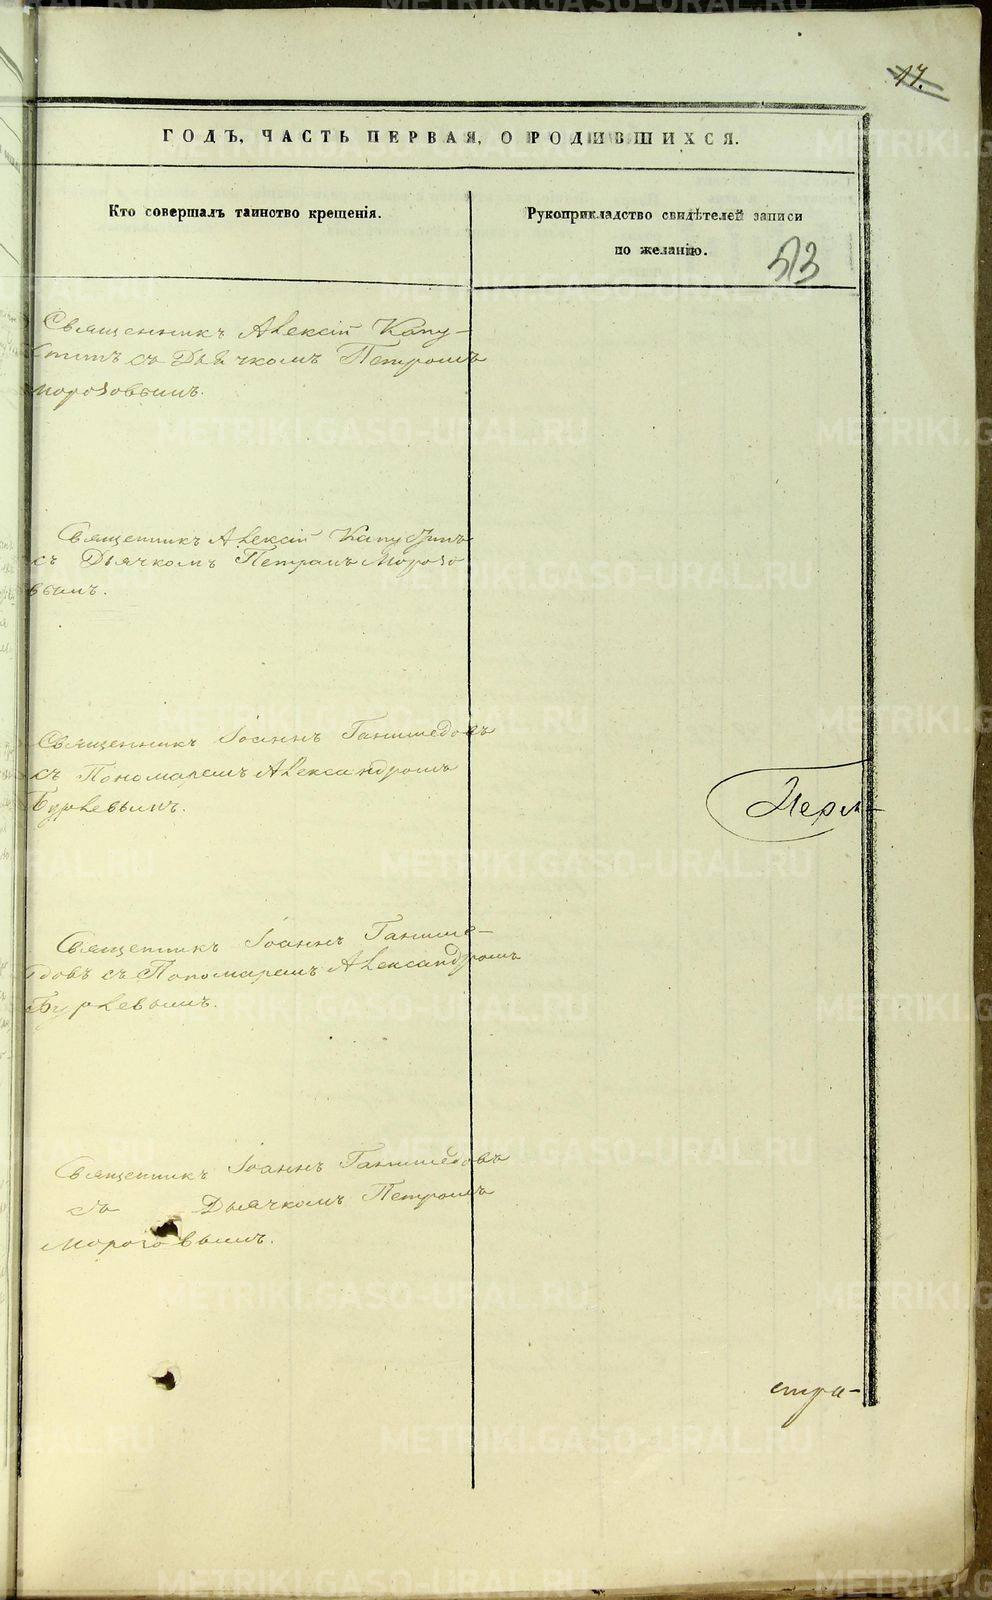 17.
ГОДЪ, ЧАСТЬ ПЕРВАЯ, О РОДИВШИХСЯ.
Кто совершалъ таинство крещенія.
Рукоприкладство свидѣтелей записи
по желанію.
53
Священникъ Алексій Капу-
стинъ съ Дьячкомъ Петромъ
Морозовымъ.
Священникъ Алексій Капустинъ
съ Дьячкомъ Петромъ Морозо
вымъ.
Священникъ Іоаннъ Ганимедовъ
съ Пономаремъ Александромъ
Бурлевымъ.
Перм-
Священникъ Іоаннъ Ганиме-
довъ съ Пономаремъ Александромъ
Бурлевымъ.
Священникъ Іоаннъ Ганимедовъ
съ Дьячкомъ Петромъ
Морозовымъ.
стра-
METRIKI.GASO-URAL.RU